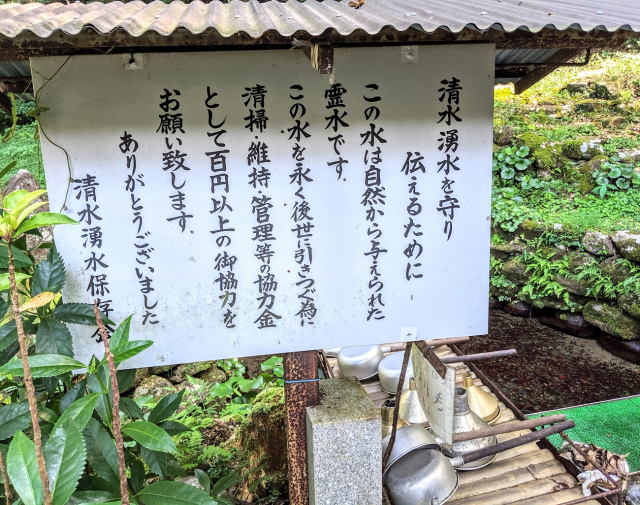 清水湧水を守り
伝えるために
この水は自然から与えられた
霊水です.
この水を永く後世に引きつぐ為に
清掃・維持・管理等の協力金
として百円以上の御協力を
お願い致します.
ありがとうございました
清水湧水保存会